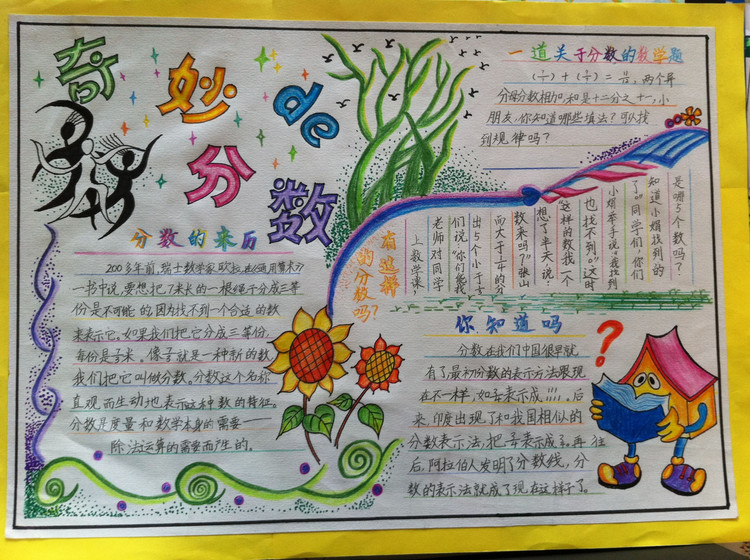 奇妙的分数
分数的来历
200多年前，瑞士数学家欧拉，在《通用算术》
一书中说，要想把7米长的一根绳子分成三等
份是不可能的，因为找不到一个合适的数
来表示它。如果我们把它分成三等份，
每份是7/3米，像7/3就是一种新的数，
我们把它叫做分数。分数这个名称
直观而生动地表示这种数的特征。
分数是度量和数学本身的需要——
除法运算的需要而产生的。
一道关于分数的数学题
两个异
分母分数相加，和是十二分之十一，小
朋友，你知道哪些填法？可以找
到规律吗？
有这样
的分数吗？
上数学课，
老师对同学
们说：“你们能找
出5个小于
而大于1/4的分
数来吗？”张山
想了半天说：
“这样的数我一个
也找不到。”这时
小娟举手说：“我找到
了。”同学们，你们
知道小娟找到的
是哪5个数吗？
你知道吗
分数在我们中国很早就
有了，最初分数的表示方法跟现
在不一样，如3/5表示成
后
来，印度出现了和我国相似的
分数表示法，把3/5表示成
再往
后，阿拉伯人发明了分数线，分
数的表示法就成了现在这样子了。
?